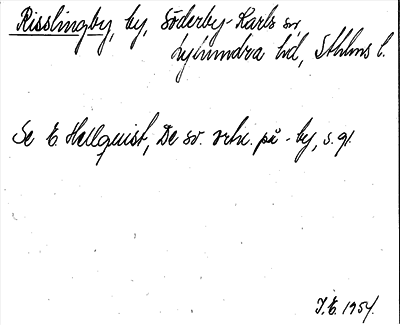 Risslingby, by, Söderby-Karls sn,
Lyhundra hd, Sthlms l.
Se E. Hellquist, De sv. ortn. på -by, s. 91.
J.E. 1954.